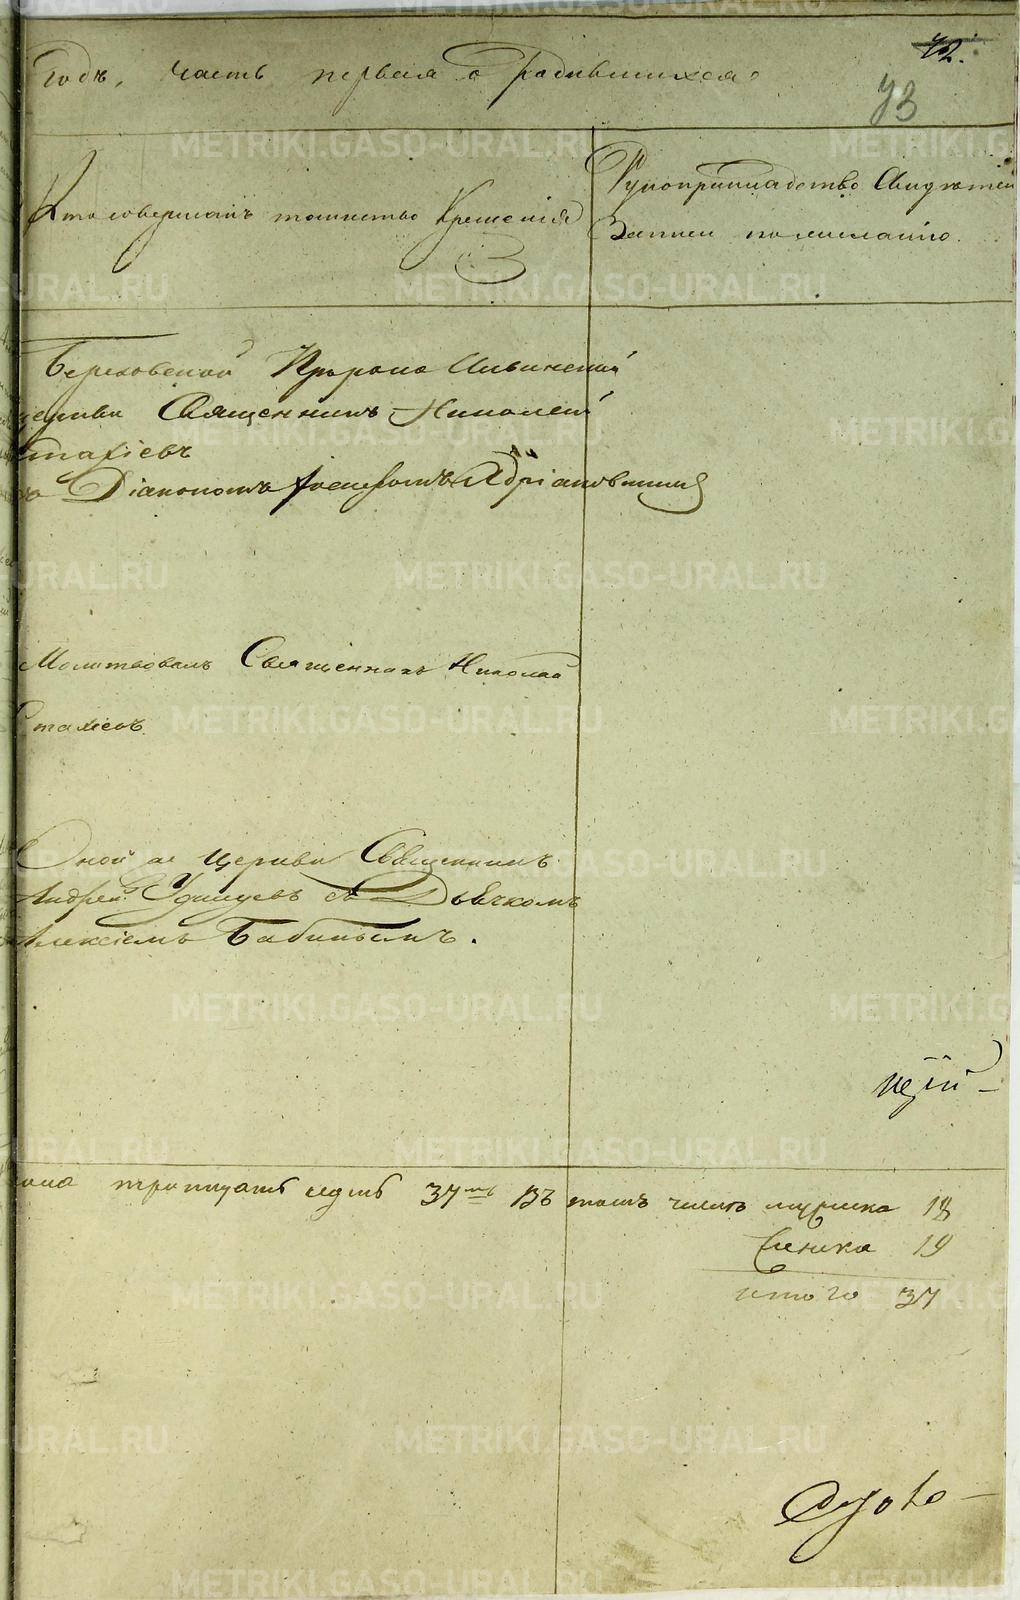 годъ, часть первая о родившихся.
42.
73
Кто совершалъ таинство Крещенія
Рукоприкладство Свидѣтелей
Записи по желанію.
Береговской Пророко Ильинской
церкви Священникъ Николай
Стахіевъ
съ Діакономъ Іосифомъ Адріановымъ
Молитвовалъ Священникъ Николай
Стахіевъ
Оной же церкви Священникъ
Андрей Удинцевъ съ Дьячкомъ
Алексіемъ Бабинымъ.
тритцать седмь 37мь Въ томъ числѣ мужска 18
женска 19
итого 37